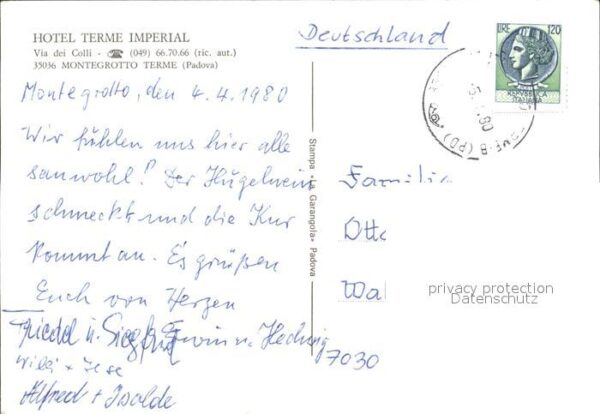 HOTEL TERME IMPERIAL
Via dei Colli - ☎ (049) 66.70.66 (ric. aut.)
35036 MONTEGROTTO TERME (Padova)
Deutschland
LIRE 120
REPVBBLICA
ITALIANA
Montegrotto, den 4.4.1980
Wir fühlen uns hier alle
sauwohl! Der Hügelwein
schmeckt und die Kur
kommt an. Es grüßen
Euch von Herzen
Friedel u. Siegfried Erwin u. Hedwig
Willi + Ilse
Alfred + Isolde
Stampa «La Garangola» Padova
Familie
Otto
Wa
7030
privacy protection
Datenschutz